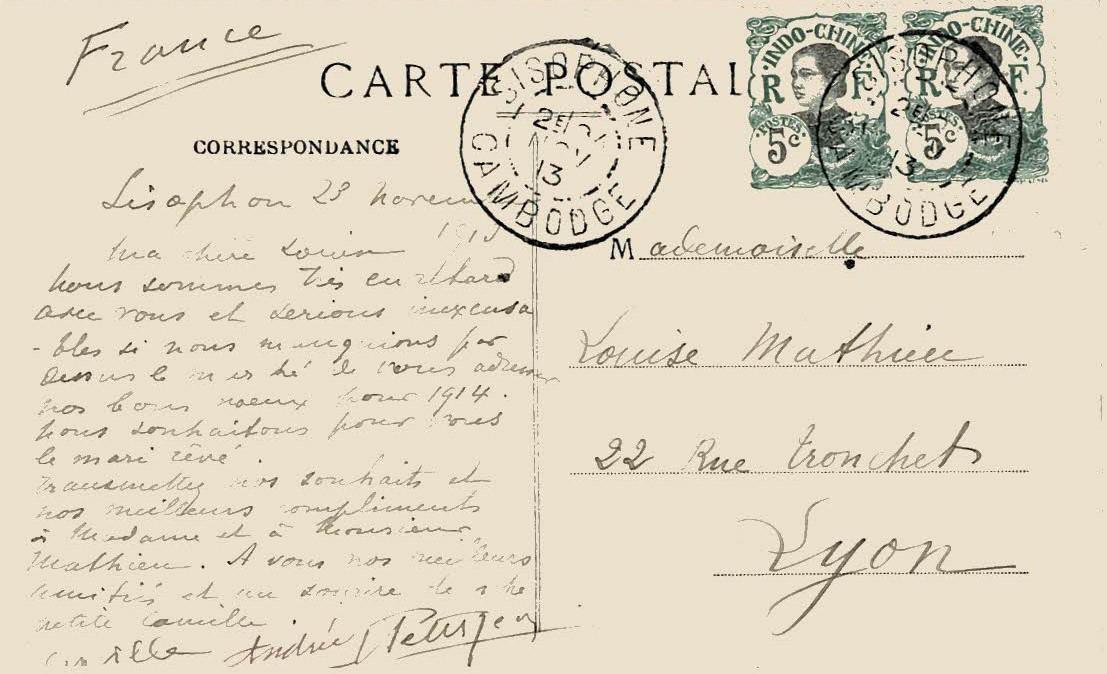 France
CARTE POSTAL
CORRESPONDANCE
INDO-CHINE
R F
POSTES
5c
INDO-CHINE
R F.
POSTES
5c
SISOPHONE
13
CAMBODGE
SISOPHONE
13
CAMBODGE
Sisophon 23 novem
1913
Ma chère Louise
Nous sommes très en retard
avec vous et serions inexcusa
-bles si nous manquions par
dessus le marché de vous adresser
nos bons voeux pour 1914.
Nous souhaitons pour vous
le mari rêvé.
Transmettez nos souhaits et
nos meilleurs compliments
à Madame et à Monsieur
Mathieu. A vous nos meilleurs
amitiés et un sourire de
petite Camille.
André
Mademoiselle
Louise Mathieu
22 Rue Tronchet
Lyon